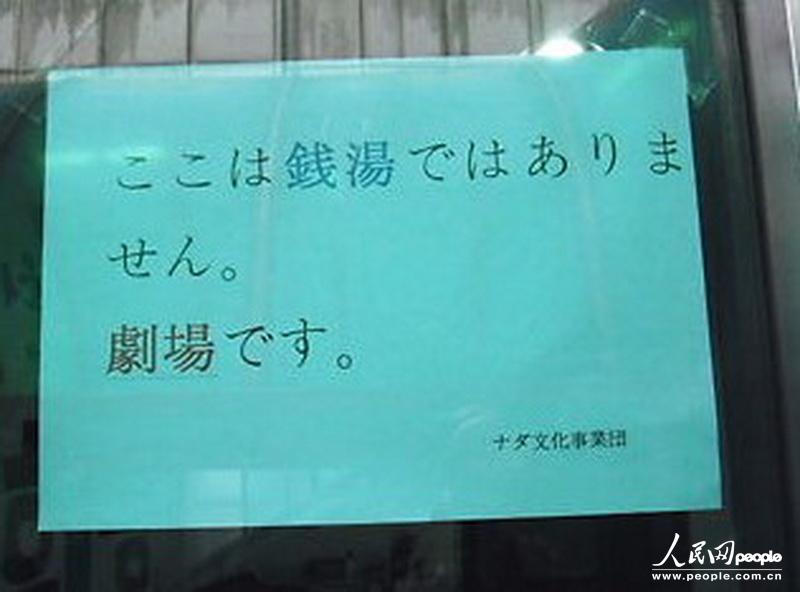 ここは銭湯ではありま
せん。
劇場です。
ナダ文化事業団
人民网people
www.people.com.cn